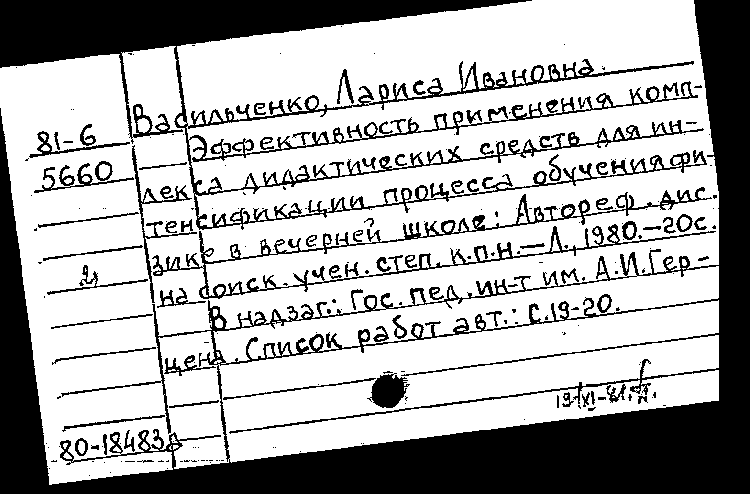 81-6
5660
2я
Васильченко, Лариса Ивановна.
Эффективность применения комп-
лекса дидактических средств для ин-
тенсификации процесса обучения фи-
зике в вечерней школе: Автореф. дис.
на соиск. учен. степ. к.п.н. — Л., 1980. — 20с.
В надзаг.: Гос. пед. ин-т им. А.И. Гер-
цена. Список работ авт.: с. 19-20.
80-18483